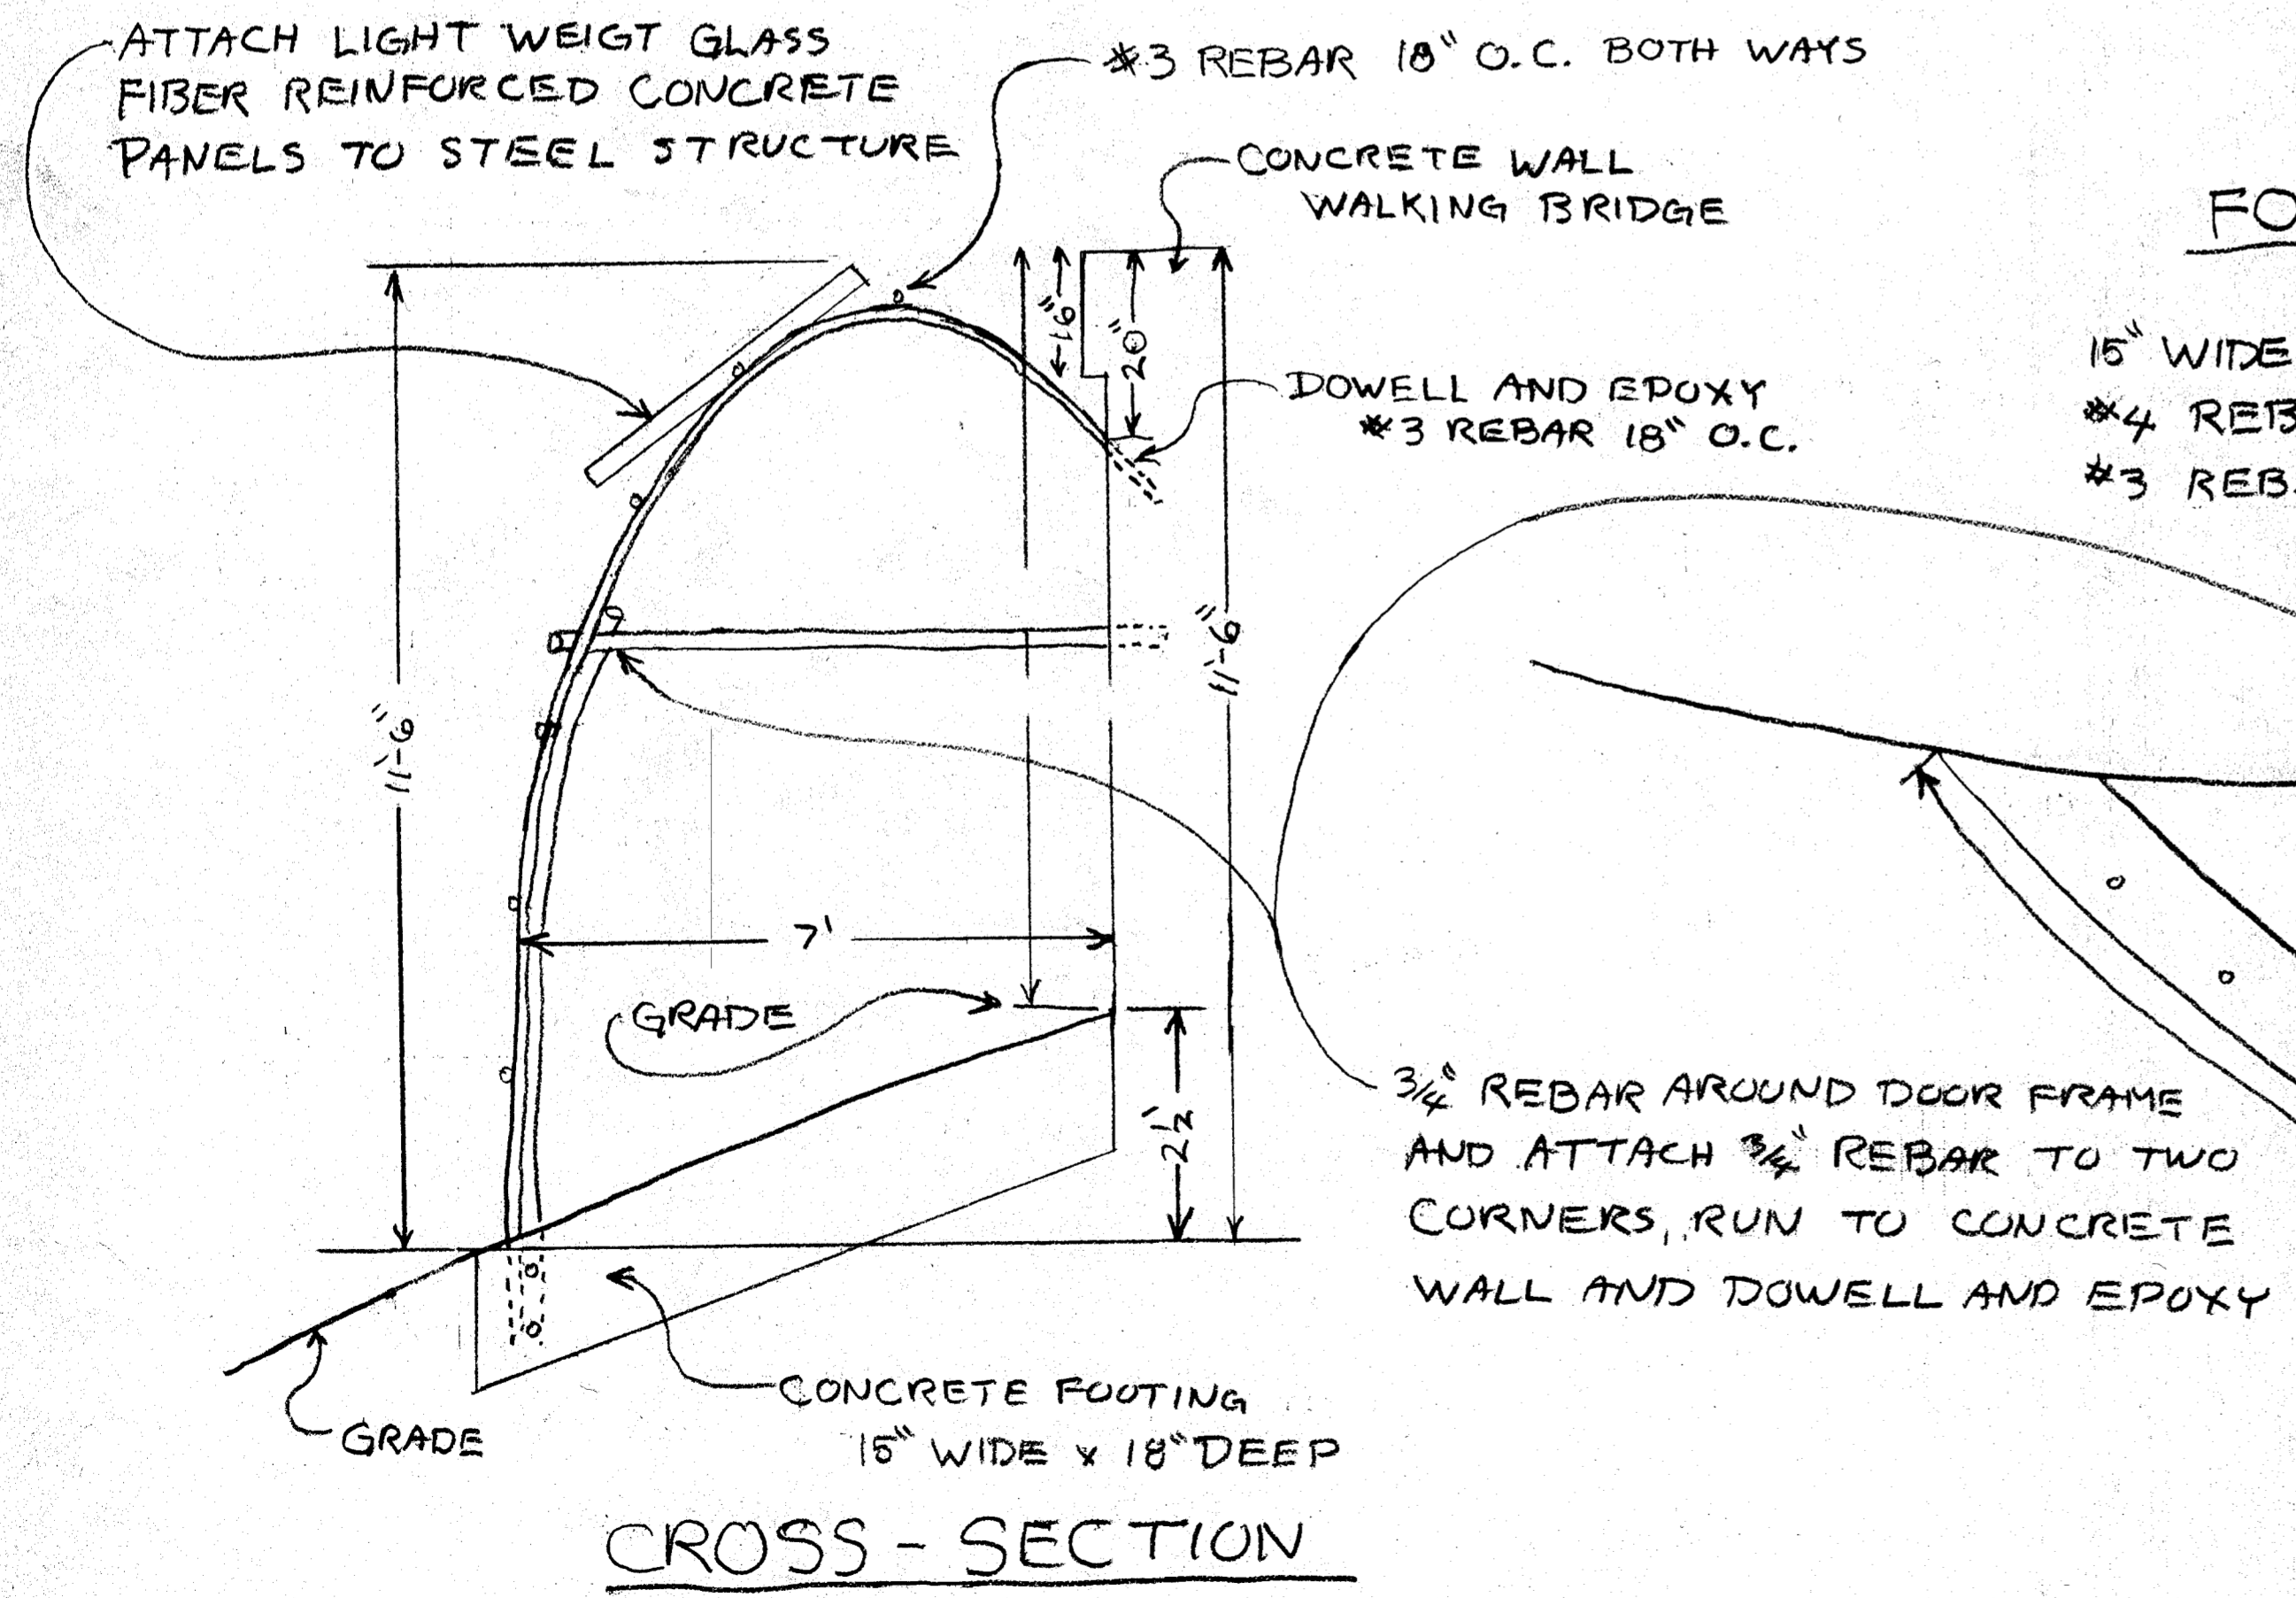 ATTACH LIGHT WEIGT GLASS
FIBER REINFORCED CONCRETE
PANELS TO STEEL STRUCTURE
#3 REBAR 18" O.C. BOTH WAYS
CONCRETE WALL
WALKING BRIDGE
FO
16"
20"
DOWELL AND EPOXY
#3 REBAR 18" O.C.
15" WIDE
#4 REB
#3 REB.
11'-6"
11'-6"
7'
GRADE
2½'
¾" REBAR AROUND DOOR FRAME
AND ATTACH ¾" REBAR TO TWO
CORNERS, RUN TO CONCRETE
WALL AND DOWELL AND EPOXY
GRADE
CONCRETE FOOTING
15" WIDE x 18" DEEP
CROSS-SECTION